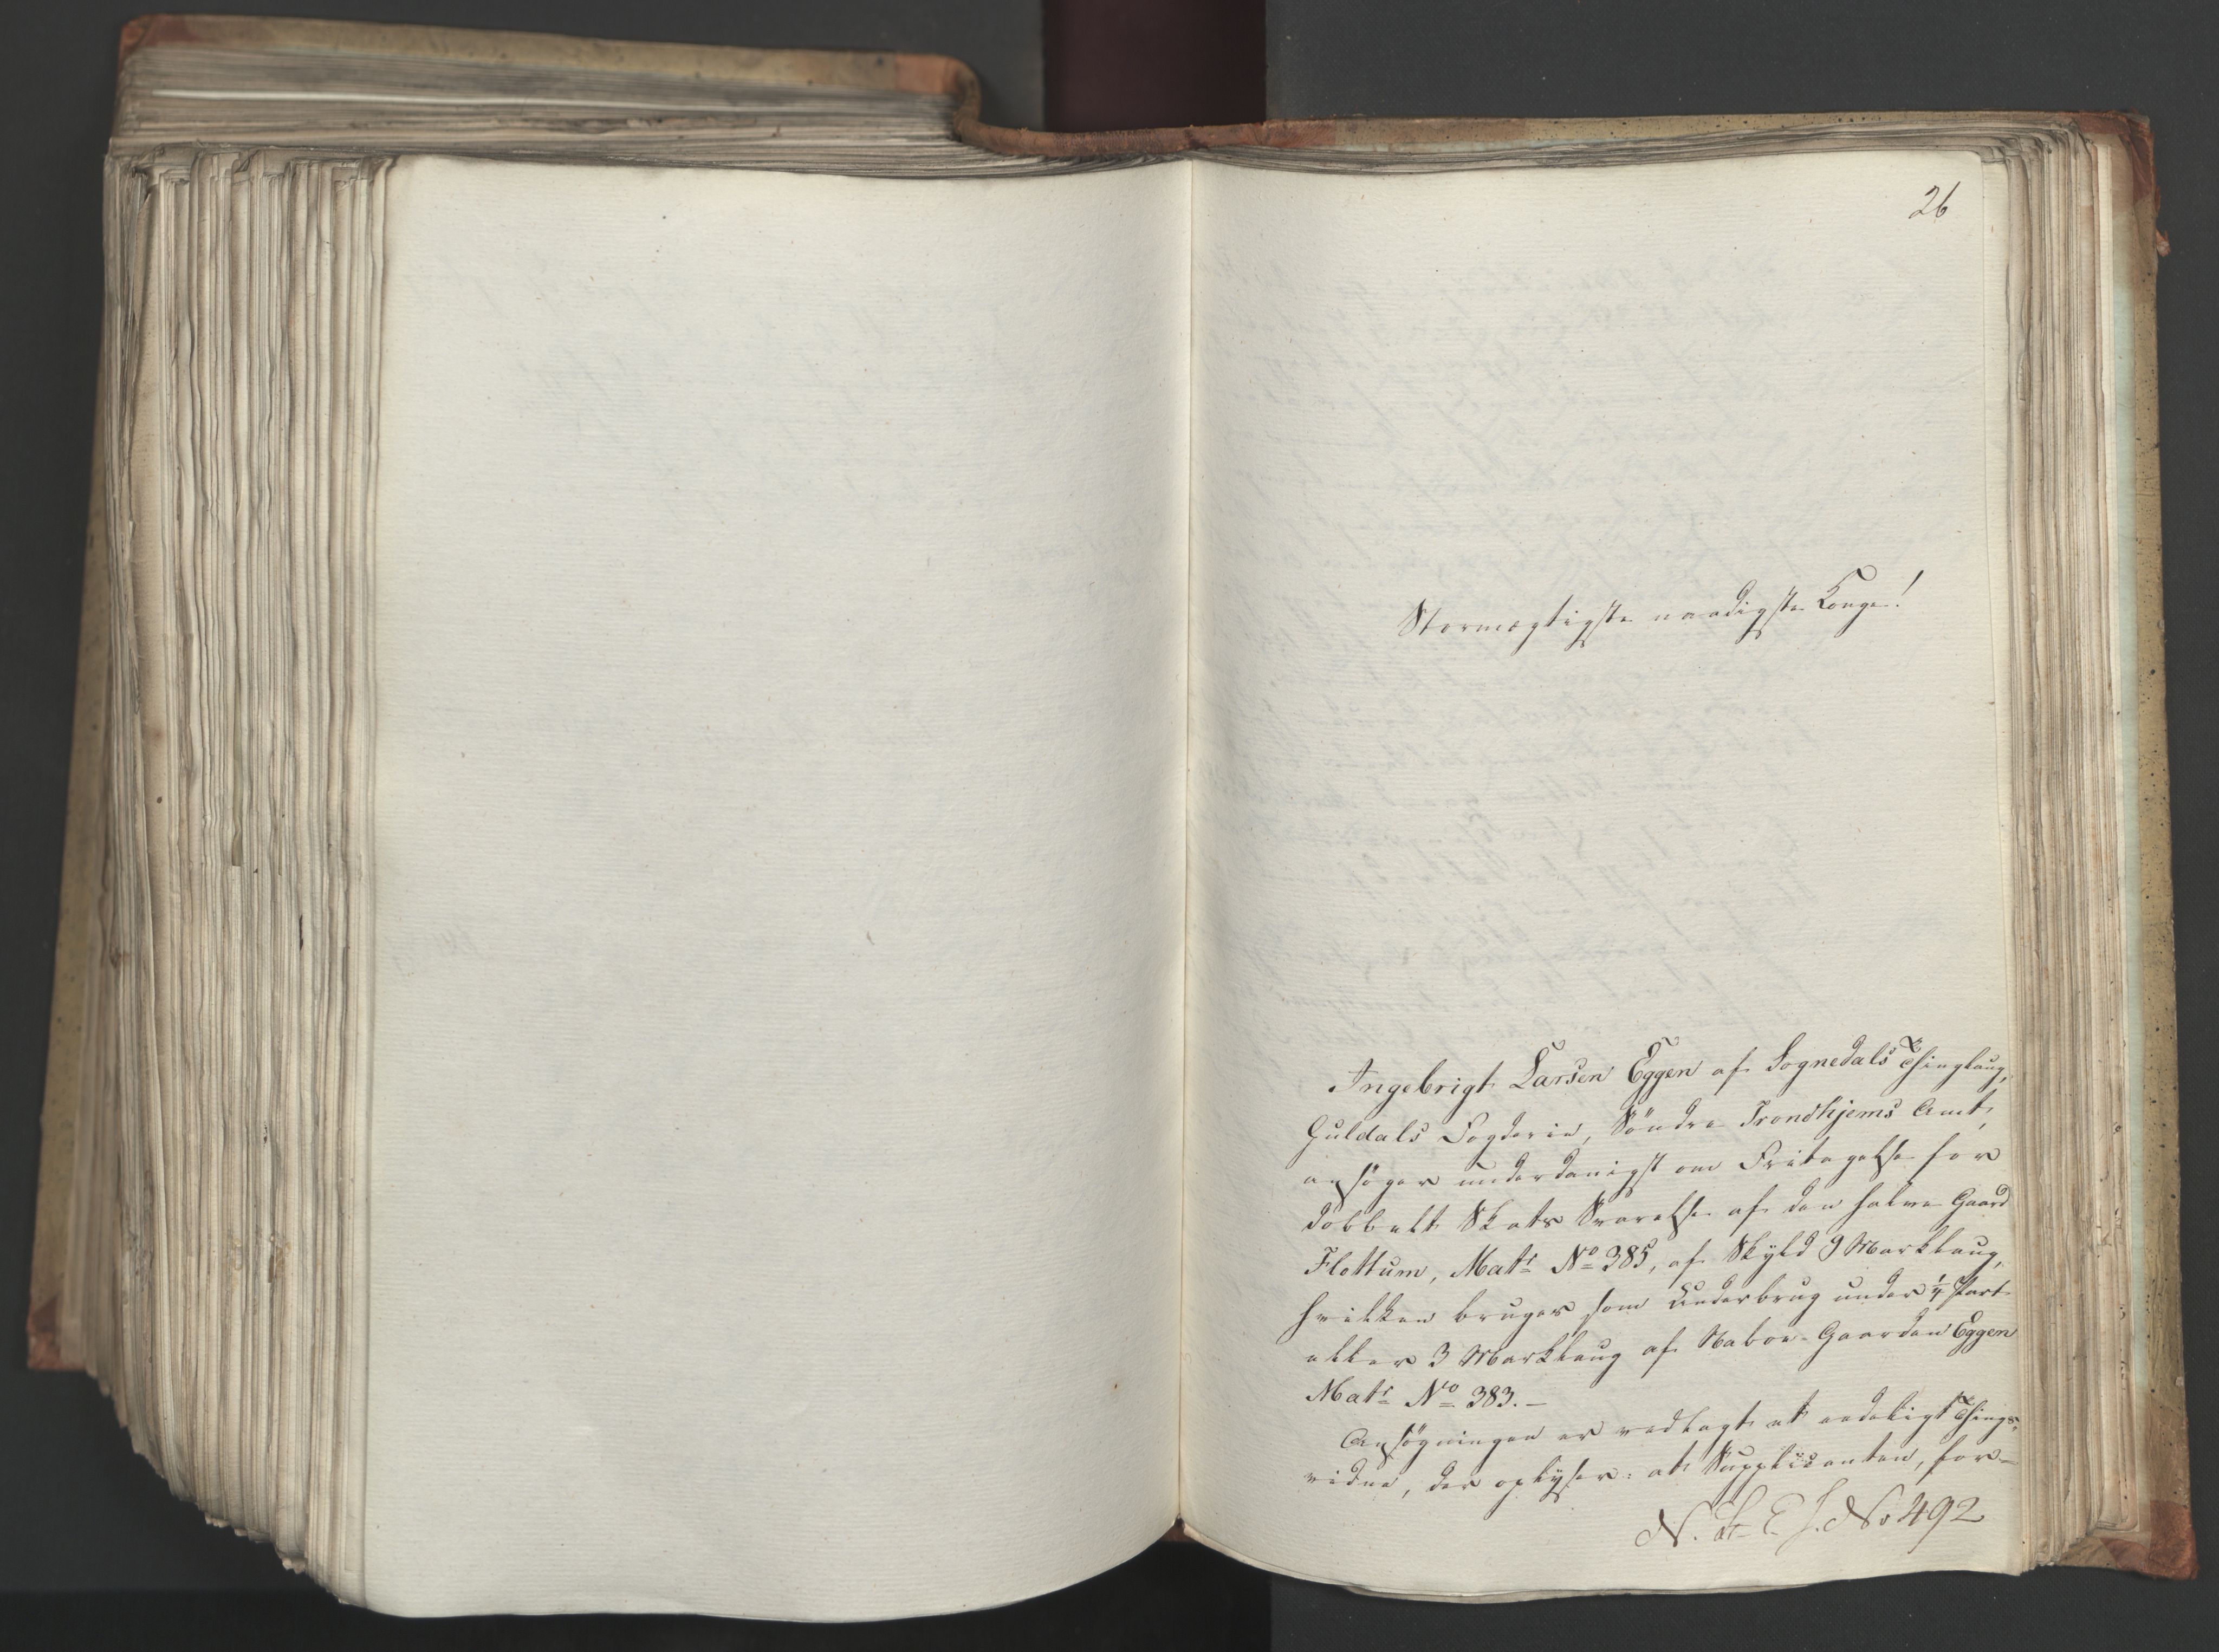 26
Stormægtigste naadigste Konge!
Ingebrigt Larsen Eggen af Sognedals Thinglaug,
Guldals Fogderie, Söndre Trondhjems Amt,
ansöger underdanigst om Fritagelse for
dobbelt Skats Svarelse af den halve Gaard
Flottum, Matr No 385, af Skyld 9 Marklaug,
hvilken bruges som Underbrug under 1/4 Part
eller 3 Marklaug af Naboe-Gaarden Eggen
Matr No 383. –
Ansögningen er vedlagt et eedeligt Things-
vidne, der oplyser: at Supplicanten, for-
N. No 492